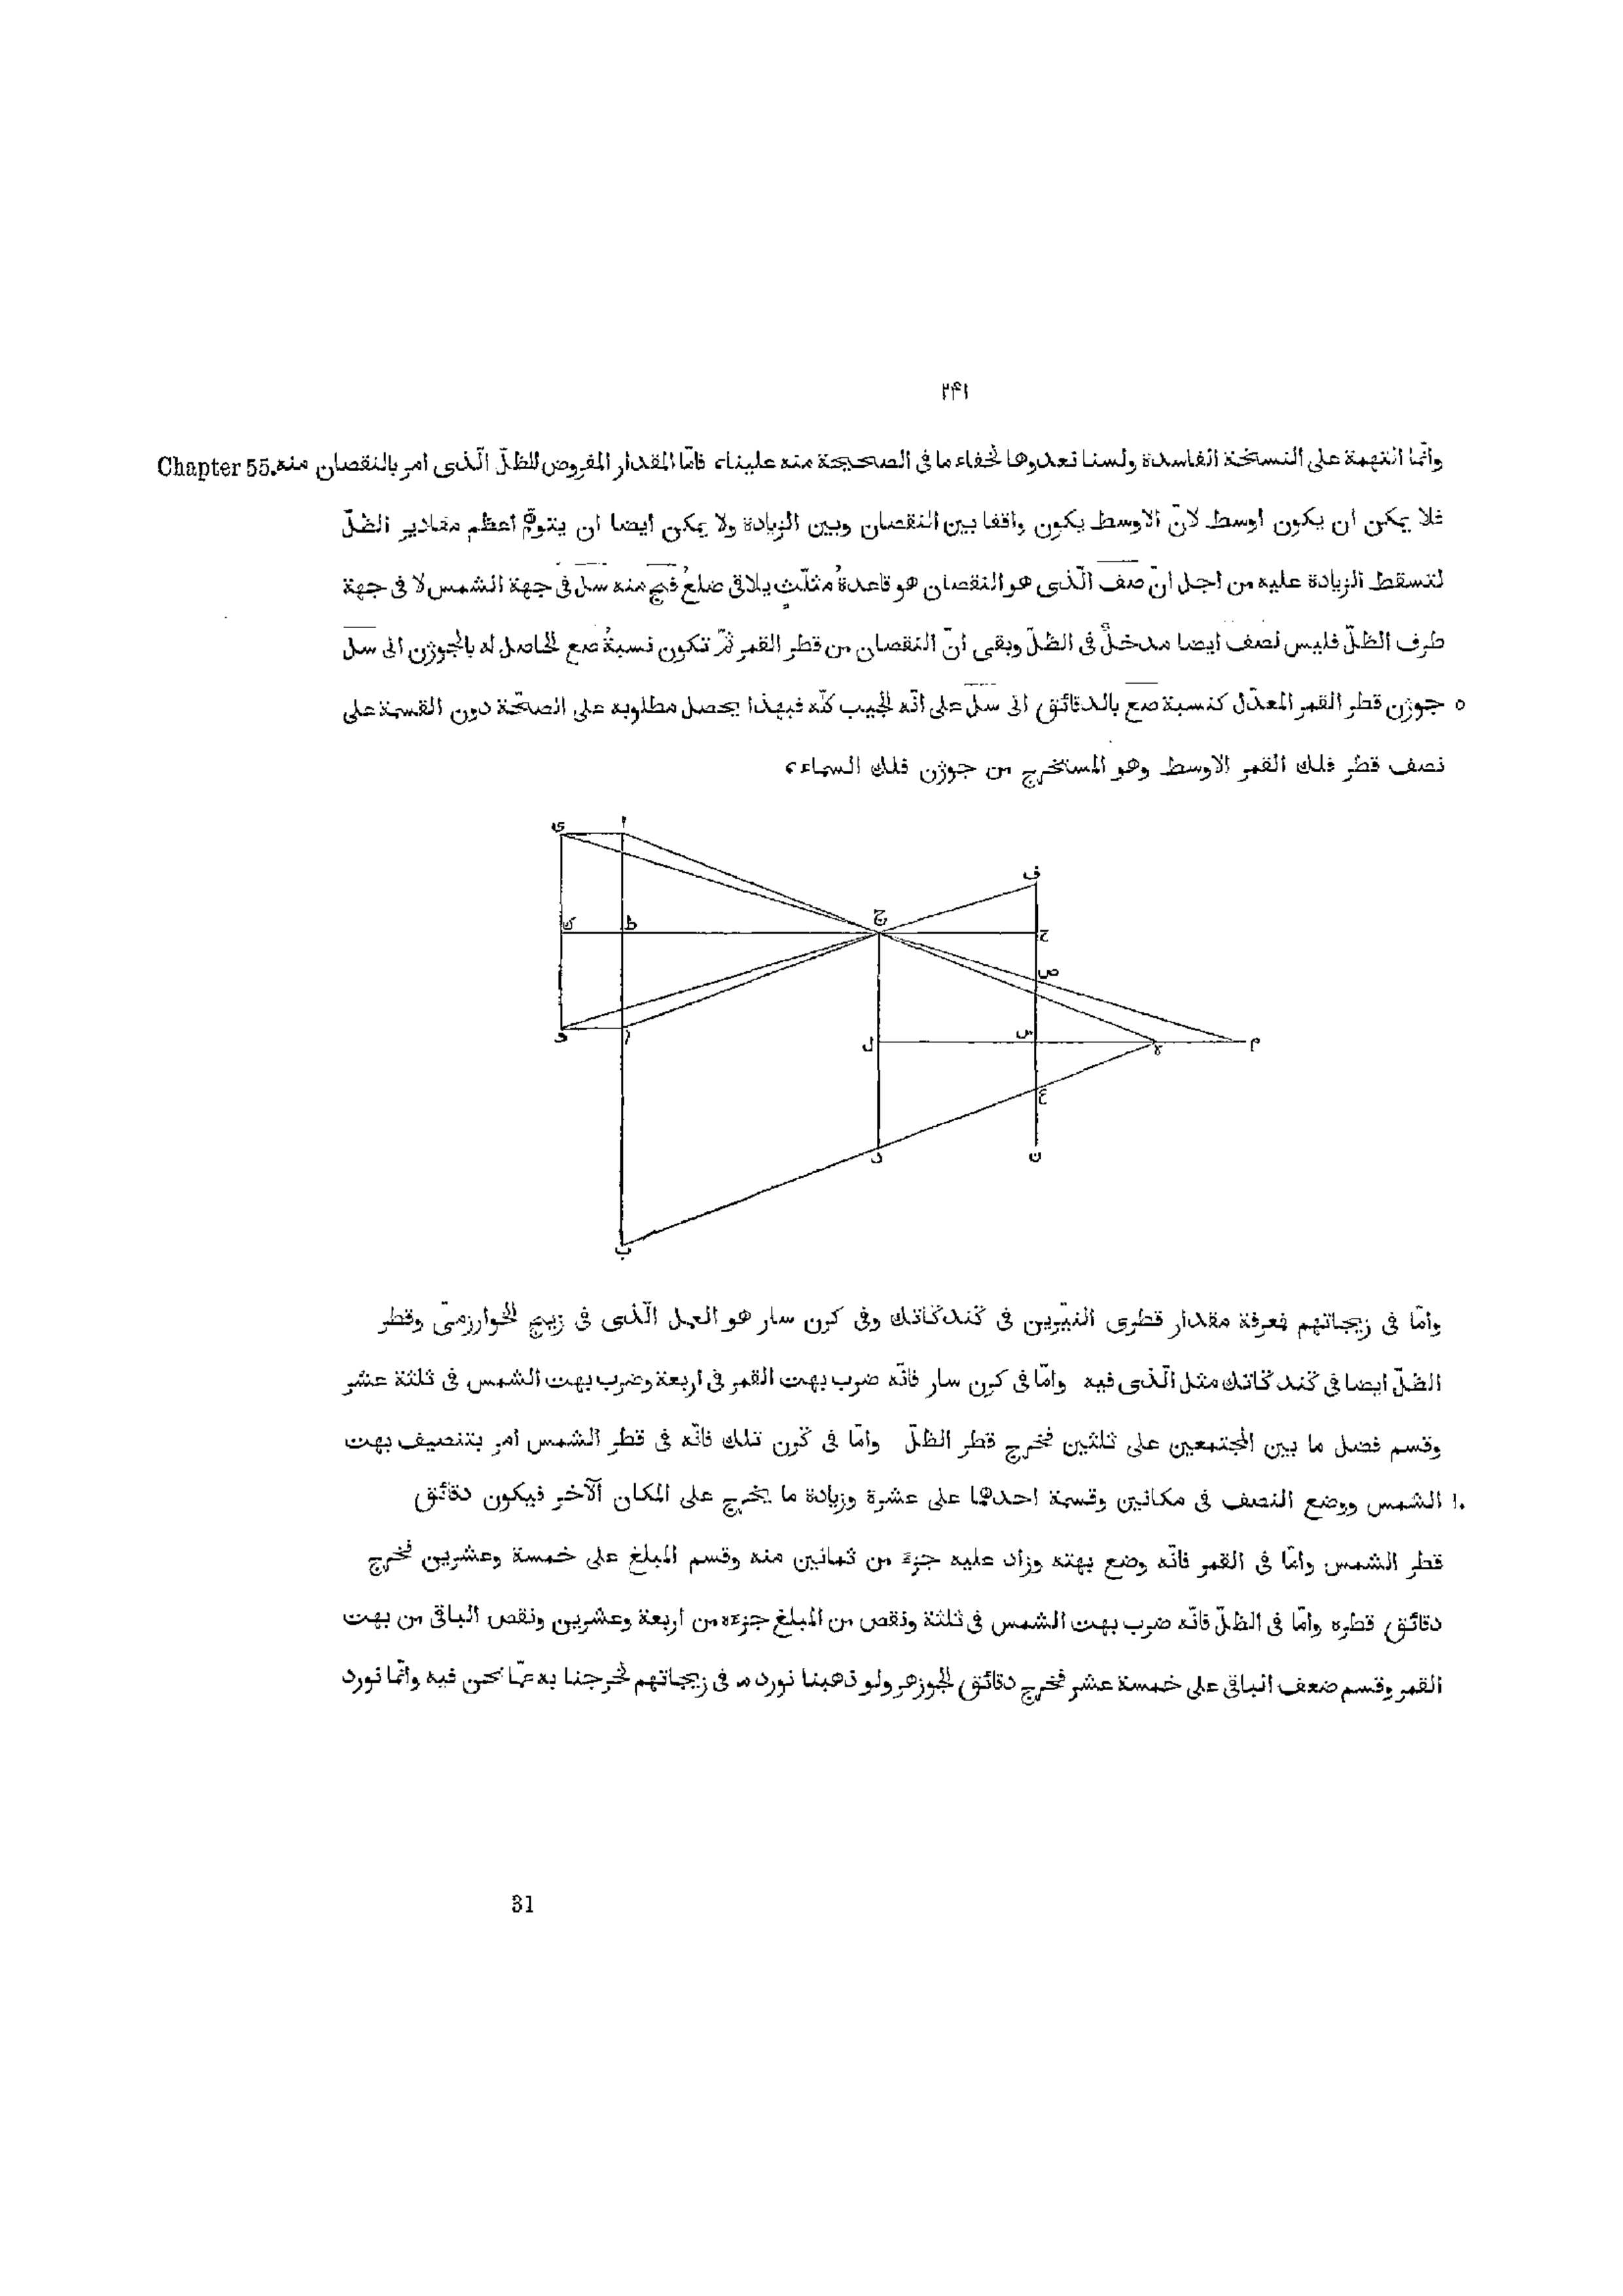 ٢۴١
وانّما التهمة على النسخة الفاسدة ولسنا نعدوها لخفاء ما فى الصحيحة منه علينا، فامّا المقدار المفروض للظلّ الّذى امر بالنقصان منه Chapter 55.
فلا يمكن ان يكون اوسط لانّ الاوسط يكون واقفا بين النقصان وبين الزيادة ولا يمكن ايضا ان يتوهّم اعظم مقادير الظلّ
لتسقط الزيادة عليه من اجل انّ صف الّذى هو النقصان هو قاعدةُ مثلّثٍ يلاقى ضلعُ فج منه سل فى جهة الشمس لا فى جهة
طرف الظلّ فليس لصف ايضا مدخلٌ فى الظلّ وبقى انّ النقصان من قطر القمر ثمّ تكون نسبةُ صع الحاصل له بالجوزن الى سل
٥ جوزن قطر القمر المعدّل كنسبة صع بالدقائق الى سل على انّه الجيب كلّه فبهذا يحصل مطلوبه على الصحّة دون القسمة على
نصف قطر فلك القمر الاوسط وهو المستخرج من جوزن فلك السماء،
ى ا
ف
ك ط ج ح
ص
و ز ل س ه م
ع
د ن
ب
وامّا فى زيجاتهم فمعرفة مقدار قطرى النيّرين فى كندكاتك وفى كرن سار هو العمل الّذى فى زيج الخوارزمىّ وقطر
الظلّ ايضا فى كندكاتك مثل الّذى فيه وامّا فى كرن سار فانّه ضرب بهت القمر فى اربعة وضرب بهت الشمس فى ثلثة عشر
وقسم فضل ما بين المجتمعين على ثلثين فخرج قطر الظلّ وامّا فى كرن تلك فانّه فى قطر الشمس امر بتنصيف بهت
١٠ الشمس ووضع النصف فى مكانين وقسمة احدهما على عشرة وزيادة ما يخرج على المكان الآخر فيكون دقائق
قطر الشمس وامّا فى القمر فانّه وضع بهته وزاد عليه جزءً من ثمانين منه وقسم المبلغ على خمسة وعشرين فخرج
دقائق قطره وامّا فى الظلّ فانّه ضرب بهت الشمس فى ثلثة ونقص من المبلغ جزءه من اربعة وعشرين ونقص الباقى من بهت
القمر وقسم ضعف الباقى على خمسة عشر فخرج دقائق الجوزهر ولو ذهبنا نورد ما فى زيجاتهم لخرجنا به عمّا نحن فيه وانّما نورد
31